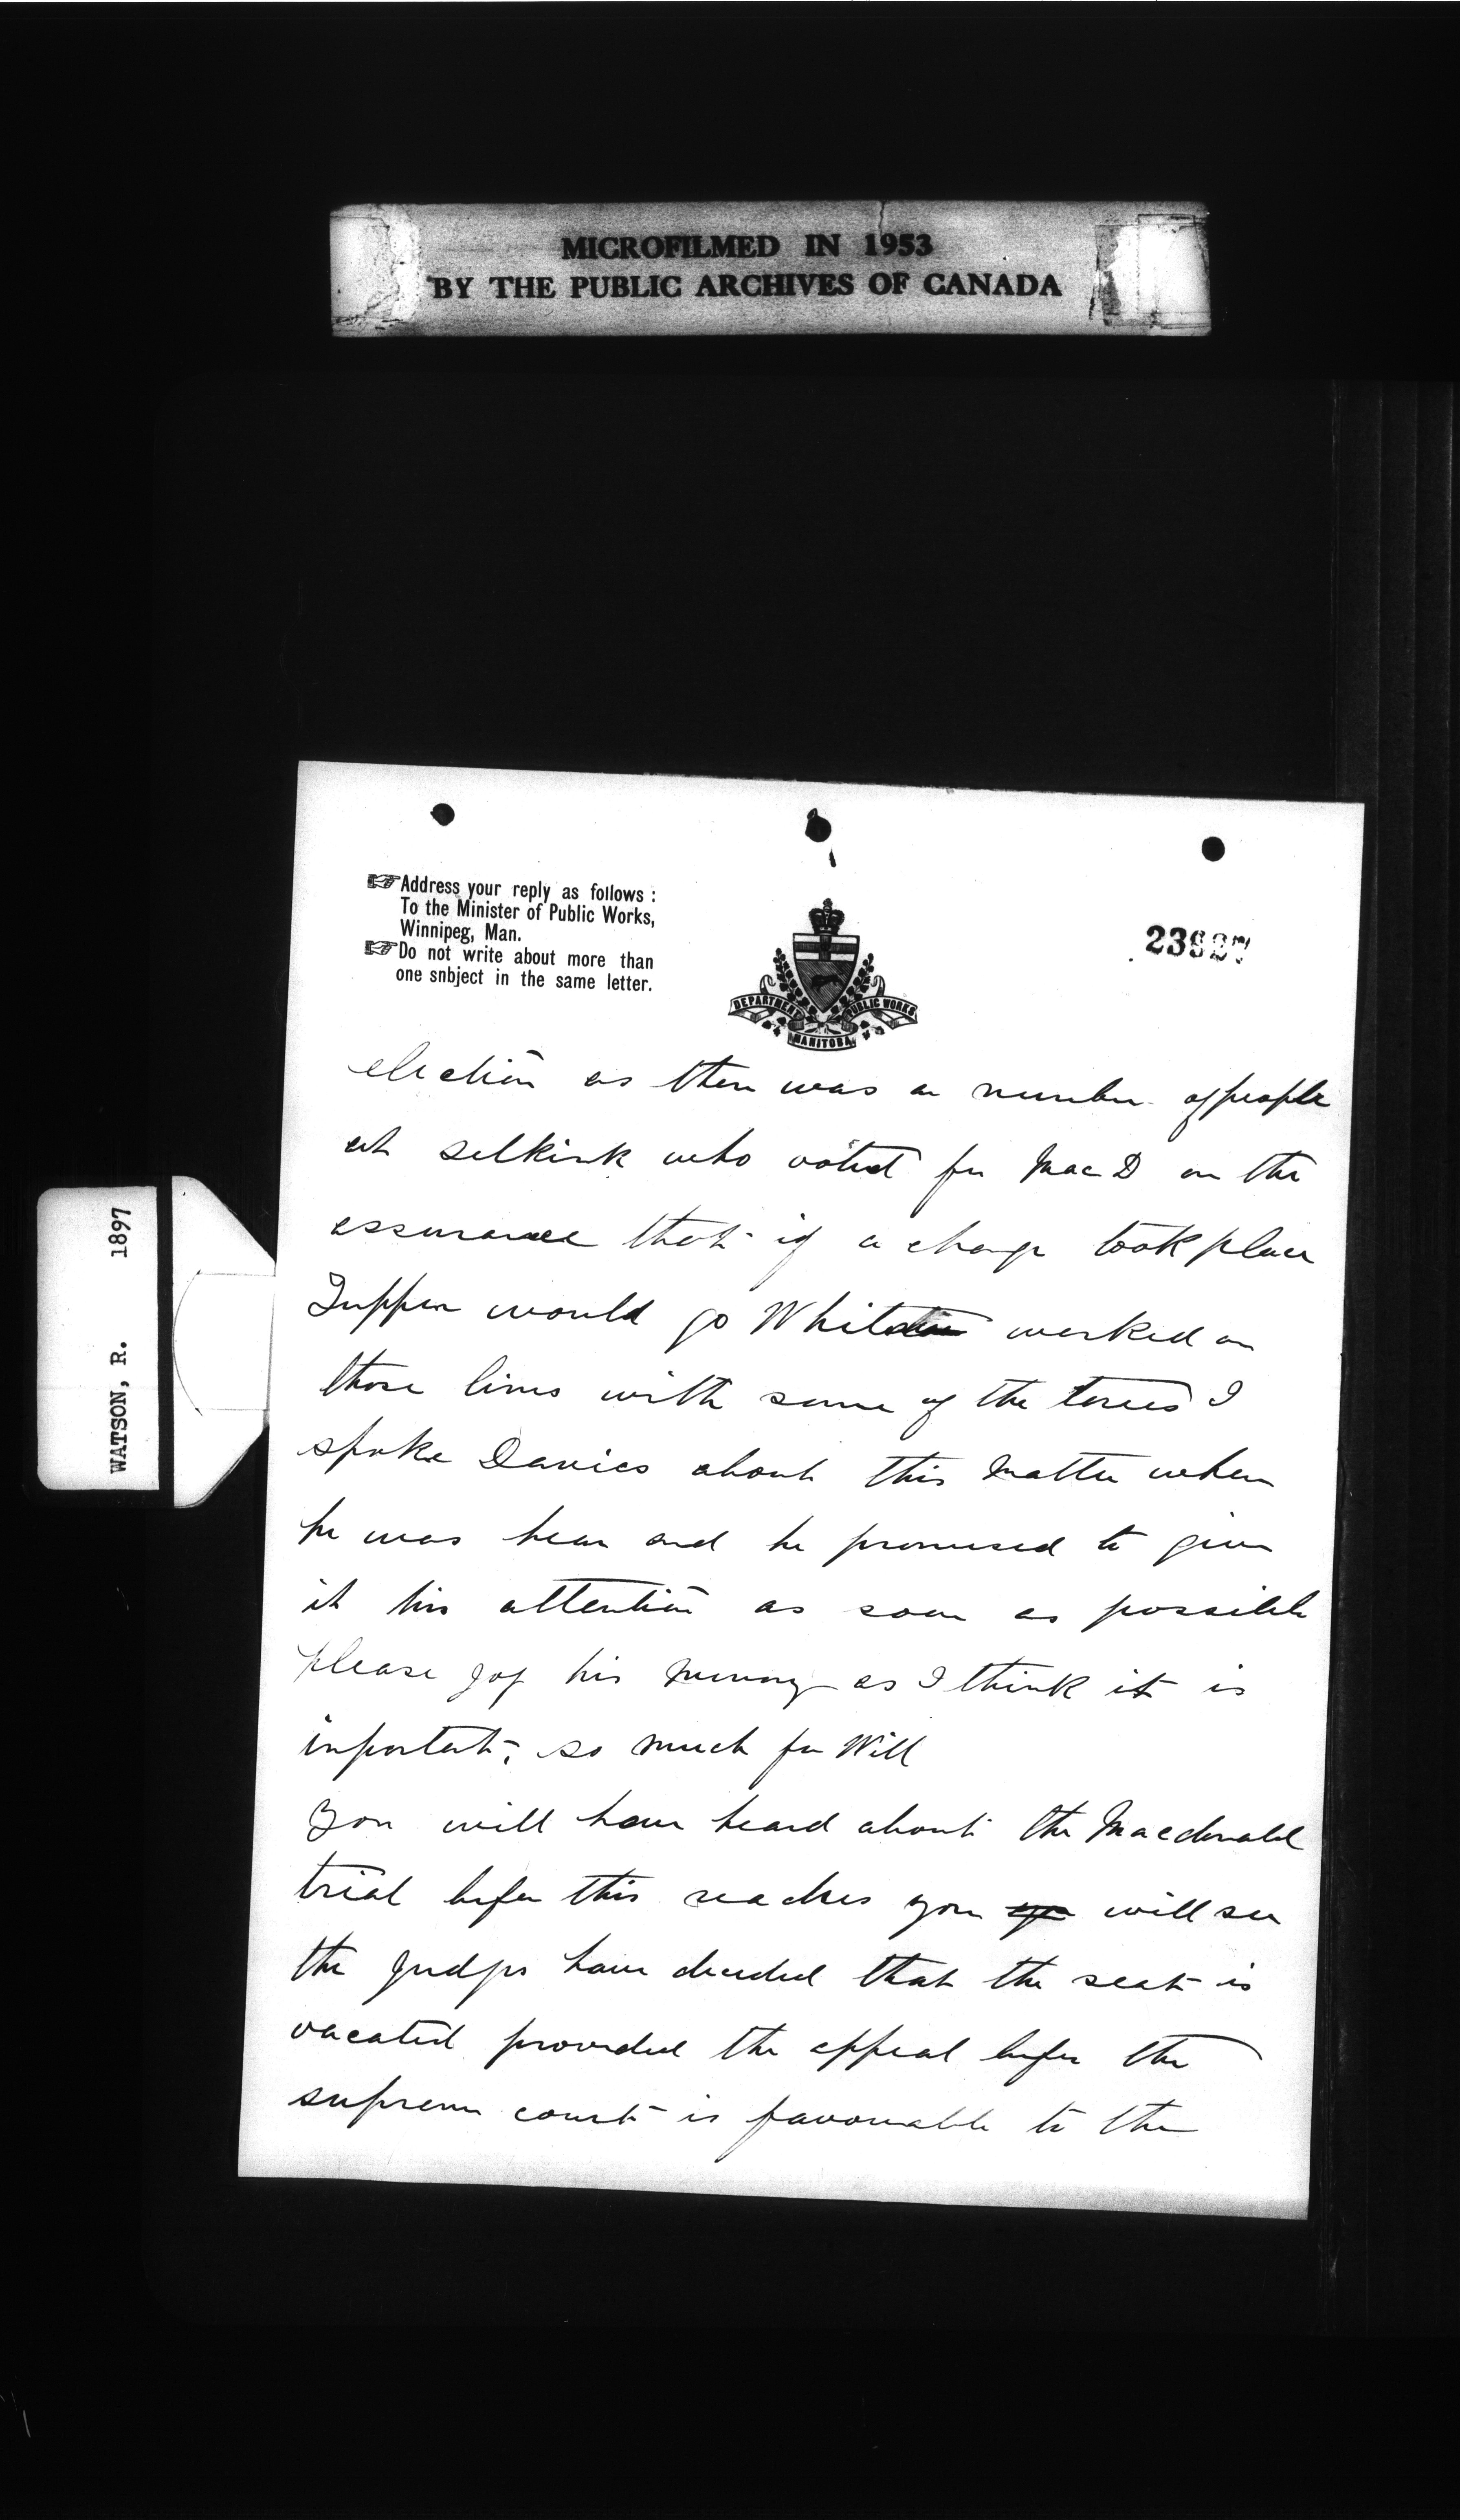 MICROFILMED IN 1953
BY THE PUBLIC ARCHIVES OF CANADA
WATSON, R. 1897
Address your reply as follows :
To the Minister of Public Works,
Winnipeg, Man.
Do not write about more than
one snbject in the same letter.
DEPARTMENT PUBLIC WORKS
MANITOBA
election as then was a number of people
at selkirk who voted for Mac D on the
assurance that if a change took place
Tupper would go worked on
those lines with some of the tories I
spoke Davies about this matter when
he was hear and he promised to give
it his attention as soon as possible
please jog his memory as I think it is
inportent, so much for Will
You will have heard about the Macdonald
trial before this reaches you will see
the Judges have decided that the seat is
vacated provided the appeal before the
supreme court is favourable to the